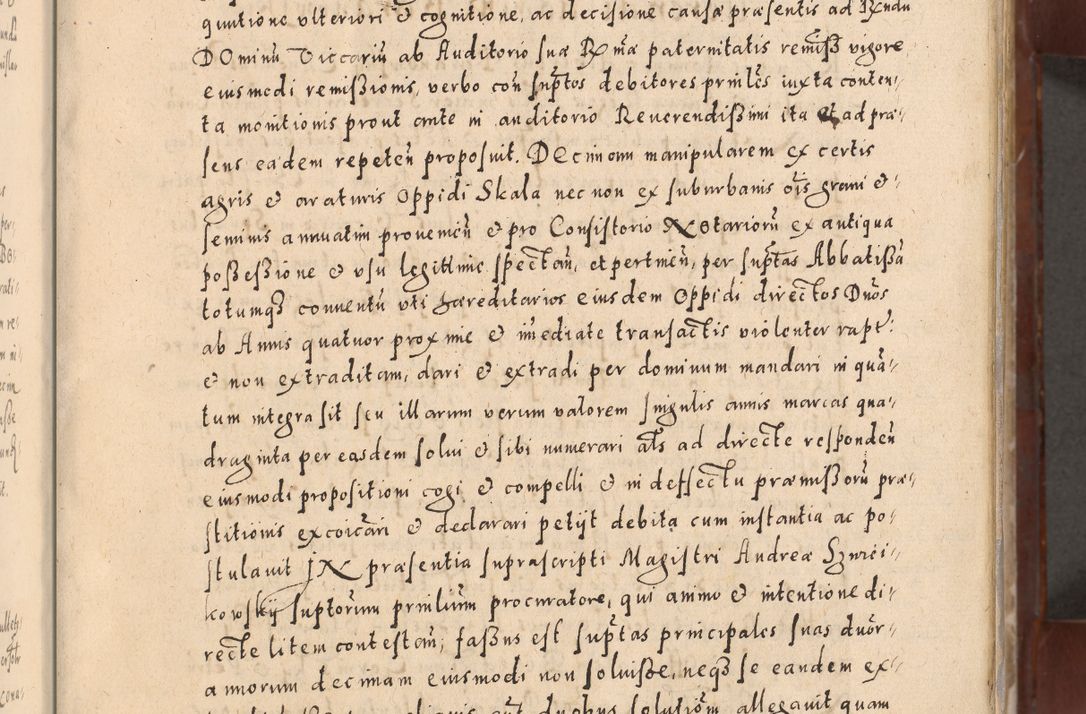 quutione ulteriori & cognitione, ac decisione causæ præsentis ad Rxndu
DOminũ Viccariũ ab Auditorio suæ Rx mæ paternitatis remiss vigore
eiusmodi remißionis, verbo coñ supt̃os debitores prniles iuxta conten-
ta monitionis prout ante in auditorio Reuerendißimi ita et ad præ-
sens eadem repeteñ proposuit. Decimam manipularem ex certis
agris & araturis Oppidi Skala nec non ex suburbanis oĩs grani &
seminis annuatim prouenieñ & pro Consistorio Notariorũ ex antiqua
poßeßione & usu legittimè spectañ, et pertineñ, per supt̃as Abbatißã
totumq3 conuentũ uti hæreditarios eiusdem Oppidi directos Dños
ab Annis quatuor proxime & im̃ediate transactis violenter rapt:
& non extraditam, dari & extradi per dominum mandari in quã-
tum integra sit seu illarum verum valorem singulis annis marcas qua-
draginta per easdem solui & sibi numerari als ad directe respondeñ
eiusmodi propositioni cogi & compelli & in deffectu præmißorũ præ-
stitionis excoicãri & declarari petijt debita cum instantia ac po-
stulauit IN præsentia suprascripti Magistri Andreæ Szwei-
kowskij suptorum prnlium procuratore, qui animo & intentione di-
recte litem contestañ, faßus est supt̃as principales suas duor-
annorum decimam eiusmodi non soluiße, neq3 se eandem ex-
duobus solutiom̃ allegauit quam